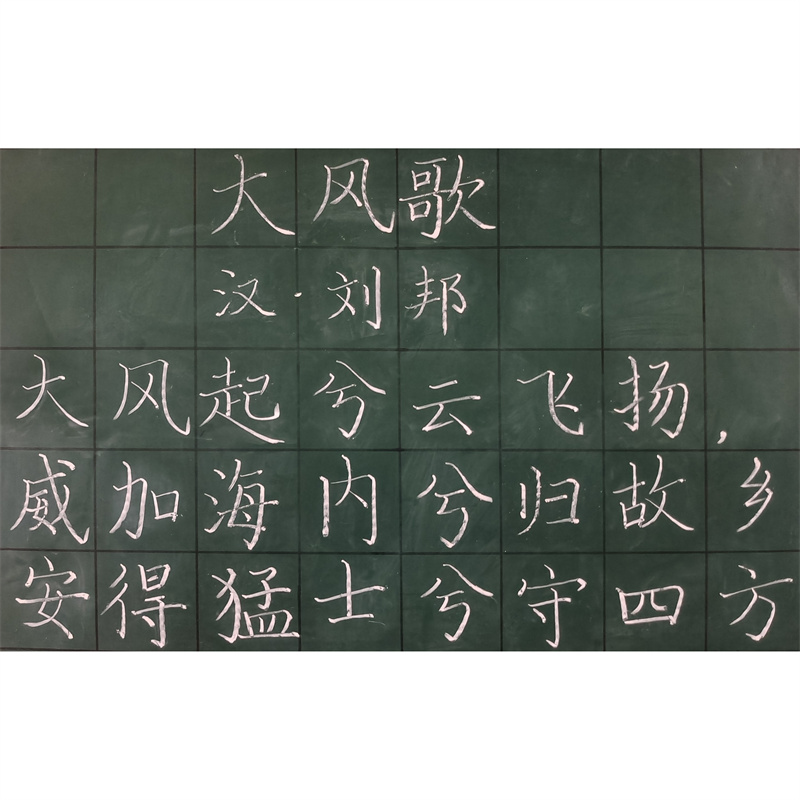 大风歌
汉·刘邦
大风起兮云飞扬，
威加海内兮归故乡
安得猛士兮守四方